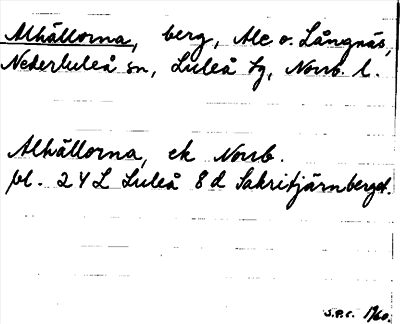 Alhällorna, berg, Ale o. Långnäs,
Nederluleå sn, Luleå tg, Norrb. l.
Alhällorna, ek Norrb.
bl. 24 L Luleå 8 d Sakritjärnberget.
S.P.C. 1960.